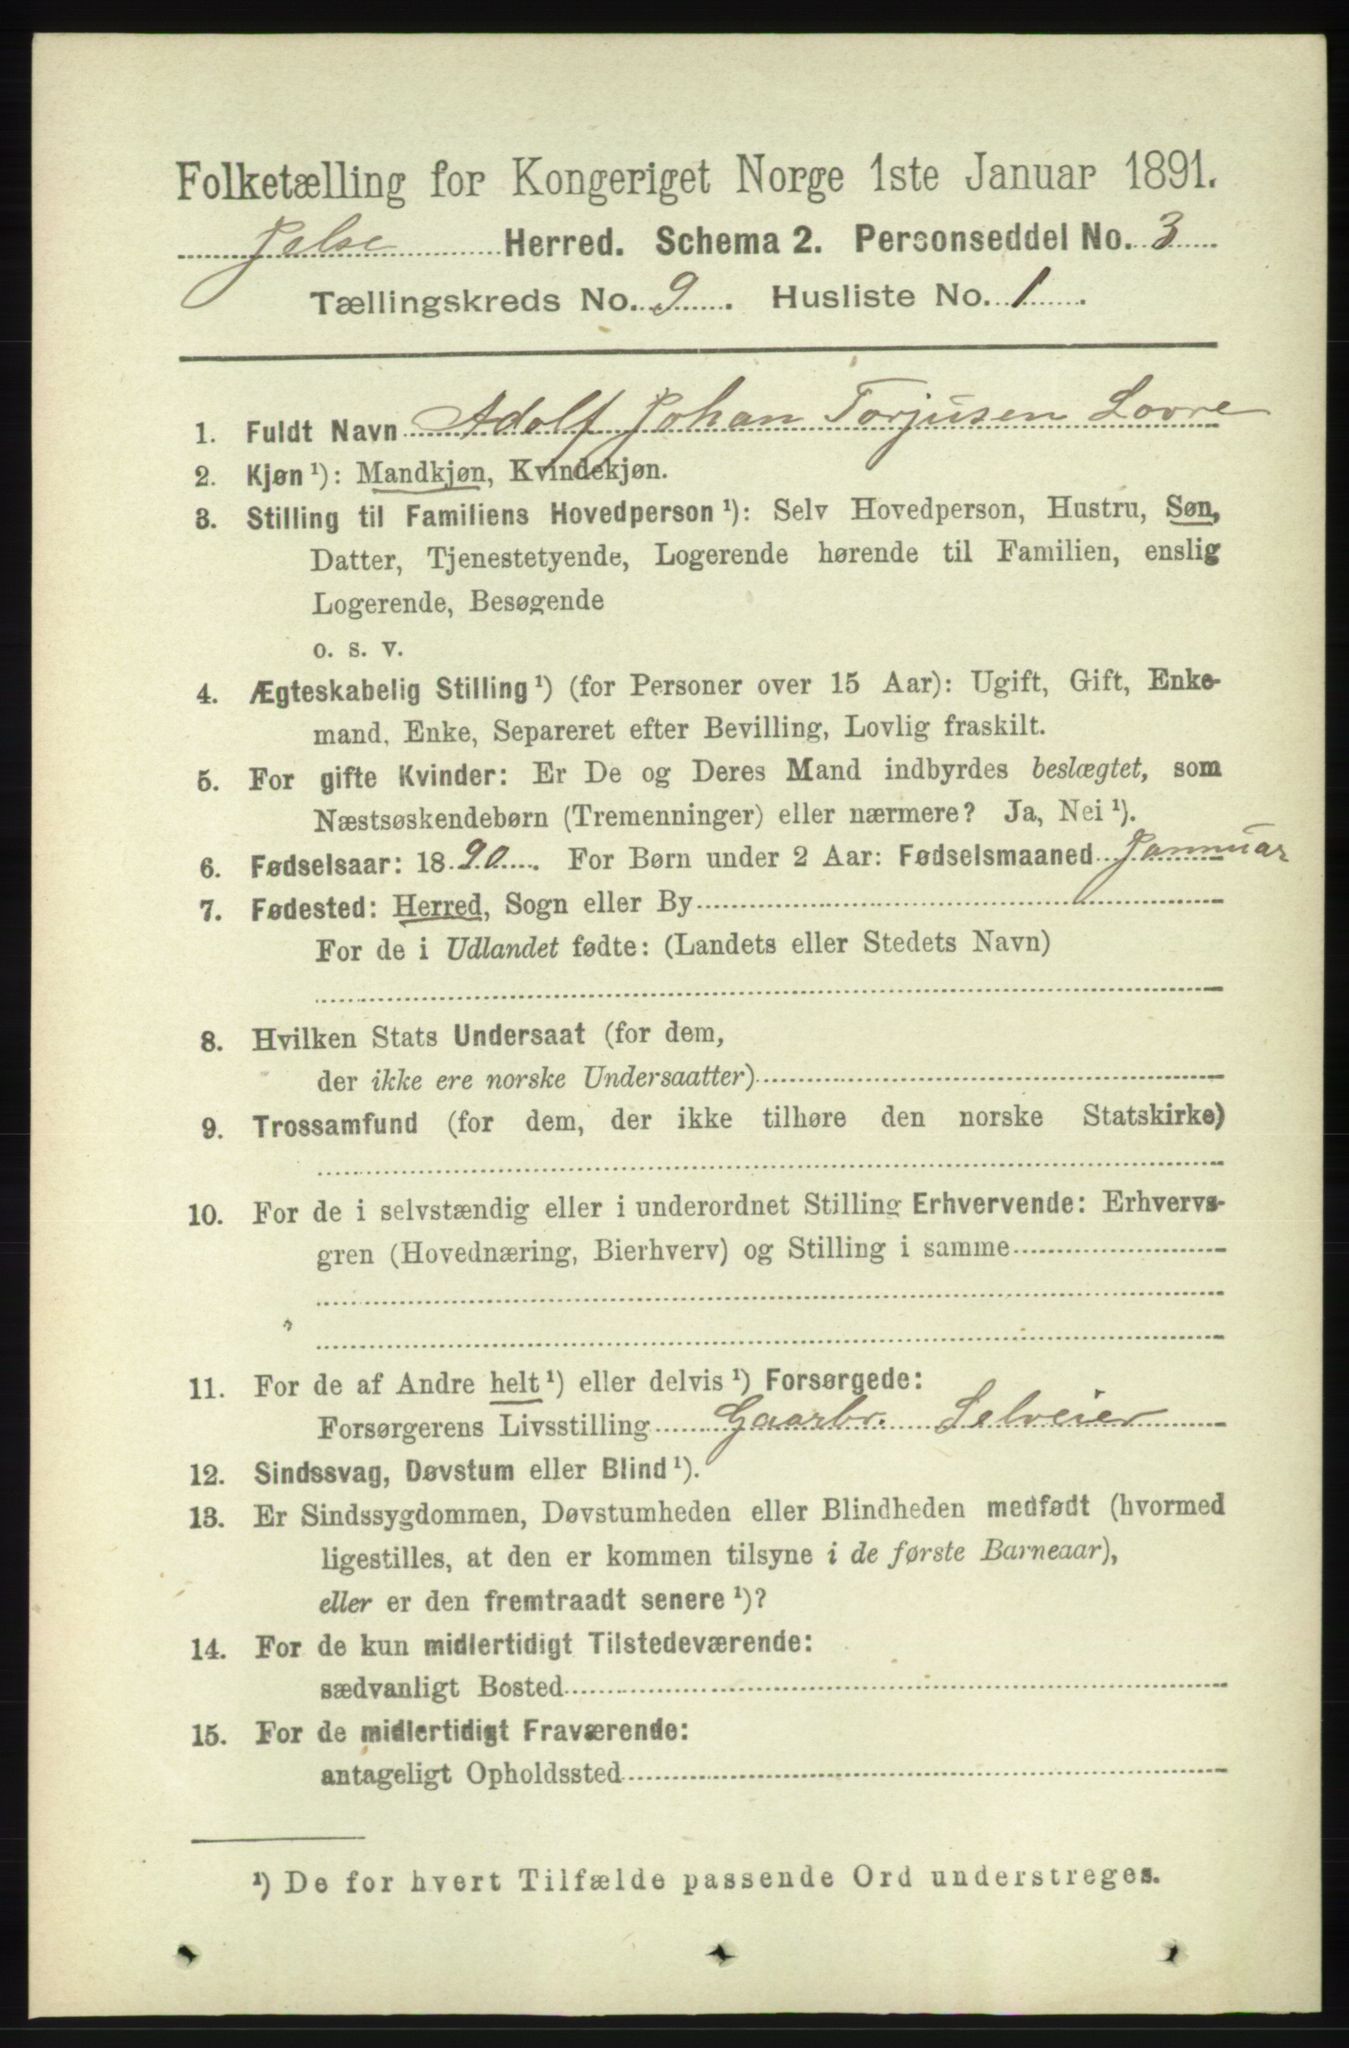 Folketælling for Kongeriget Norge 1ste Januar 1891.
Jelse Herred. Schema 2. Personseddel No. 3
Tællingskreds No. 9. Husliste No. 1.
1. Fuldt Navn Adolf Johan Torjusen Lovre
2. Kjøn ¹): Mandkjøn, Kvindekjøn.
3. Stilling til Familiens Hovedperson ¹): Selv Hovedperson, Hustru, Søn,
Datter, Tjenestetyende, Logerende hørende til Familien, enslig
Logerende, Besøgende
o. s. v.
4. Ægteskabelig Stilling ¹) (for Personer over 15 Aar): Ugift, Gift, Enke-
mand, Enke, Separeret efter Bevilling, Lovlig fraskilt.
5. For gifte Kvinder: Er De og Deres Mand indbyrdes beslægtet, som
Næstsøskendebørn (Tremenninger) eller nærmere? Ja, Nei ¹).
6. Fødselsaar: 1890. For Børn under 2 Aar: Fødselsmaaned Jannuar
7. Fødested: Herred, Sogn eller By
For de i Udlandet fødte: (Landets eller Stedets Navn)
8. Hvilken Stats Undersaat (for dem,
der ikke ere norske Undersaatter)
9. Trossamfund (for dem, der ikke tilhøre den norske Statskirke)
10. For de i selvstændig eller i underordnet Stilling Erhvervende: Erhvervs-
gren (Hovednæring, Bierhverv) og Stilling i samme
11. For de af Andre helt ¹) eller delvis ¹) Forsørgede:
Forsørgerens Livsstilling Gaarbr. Selveier
12. Sindssvag, Døvstum eller Blind ¹).
13. Er Sindssygdommen, Døvstumheden eller Blindheden medfødt (hvormed
ligestilles, at den er kommen tilsyne i de første Barneaar),
eller er den fremtraadt senere ¹)?
14. For de kun midlertidigt Tilstedeværende:
sædvanligt Bosted
15. For de midlertidigt Fraværende:
antageligt Opholdssted
¹) De for hvert Tilfælde passende Ord understreges.